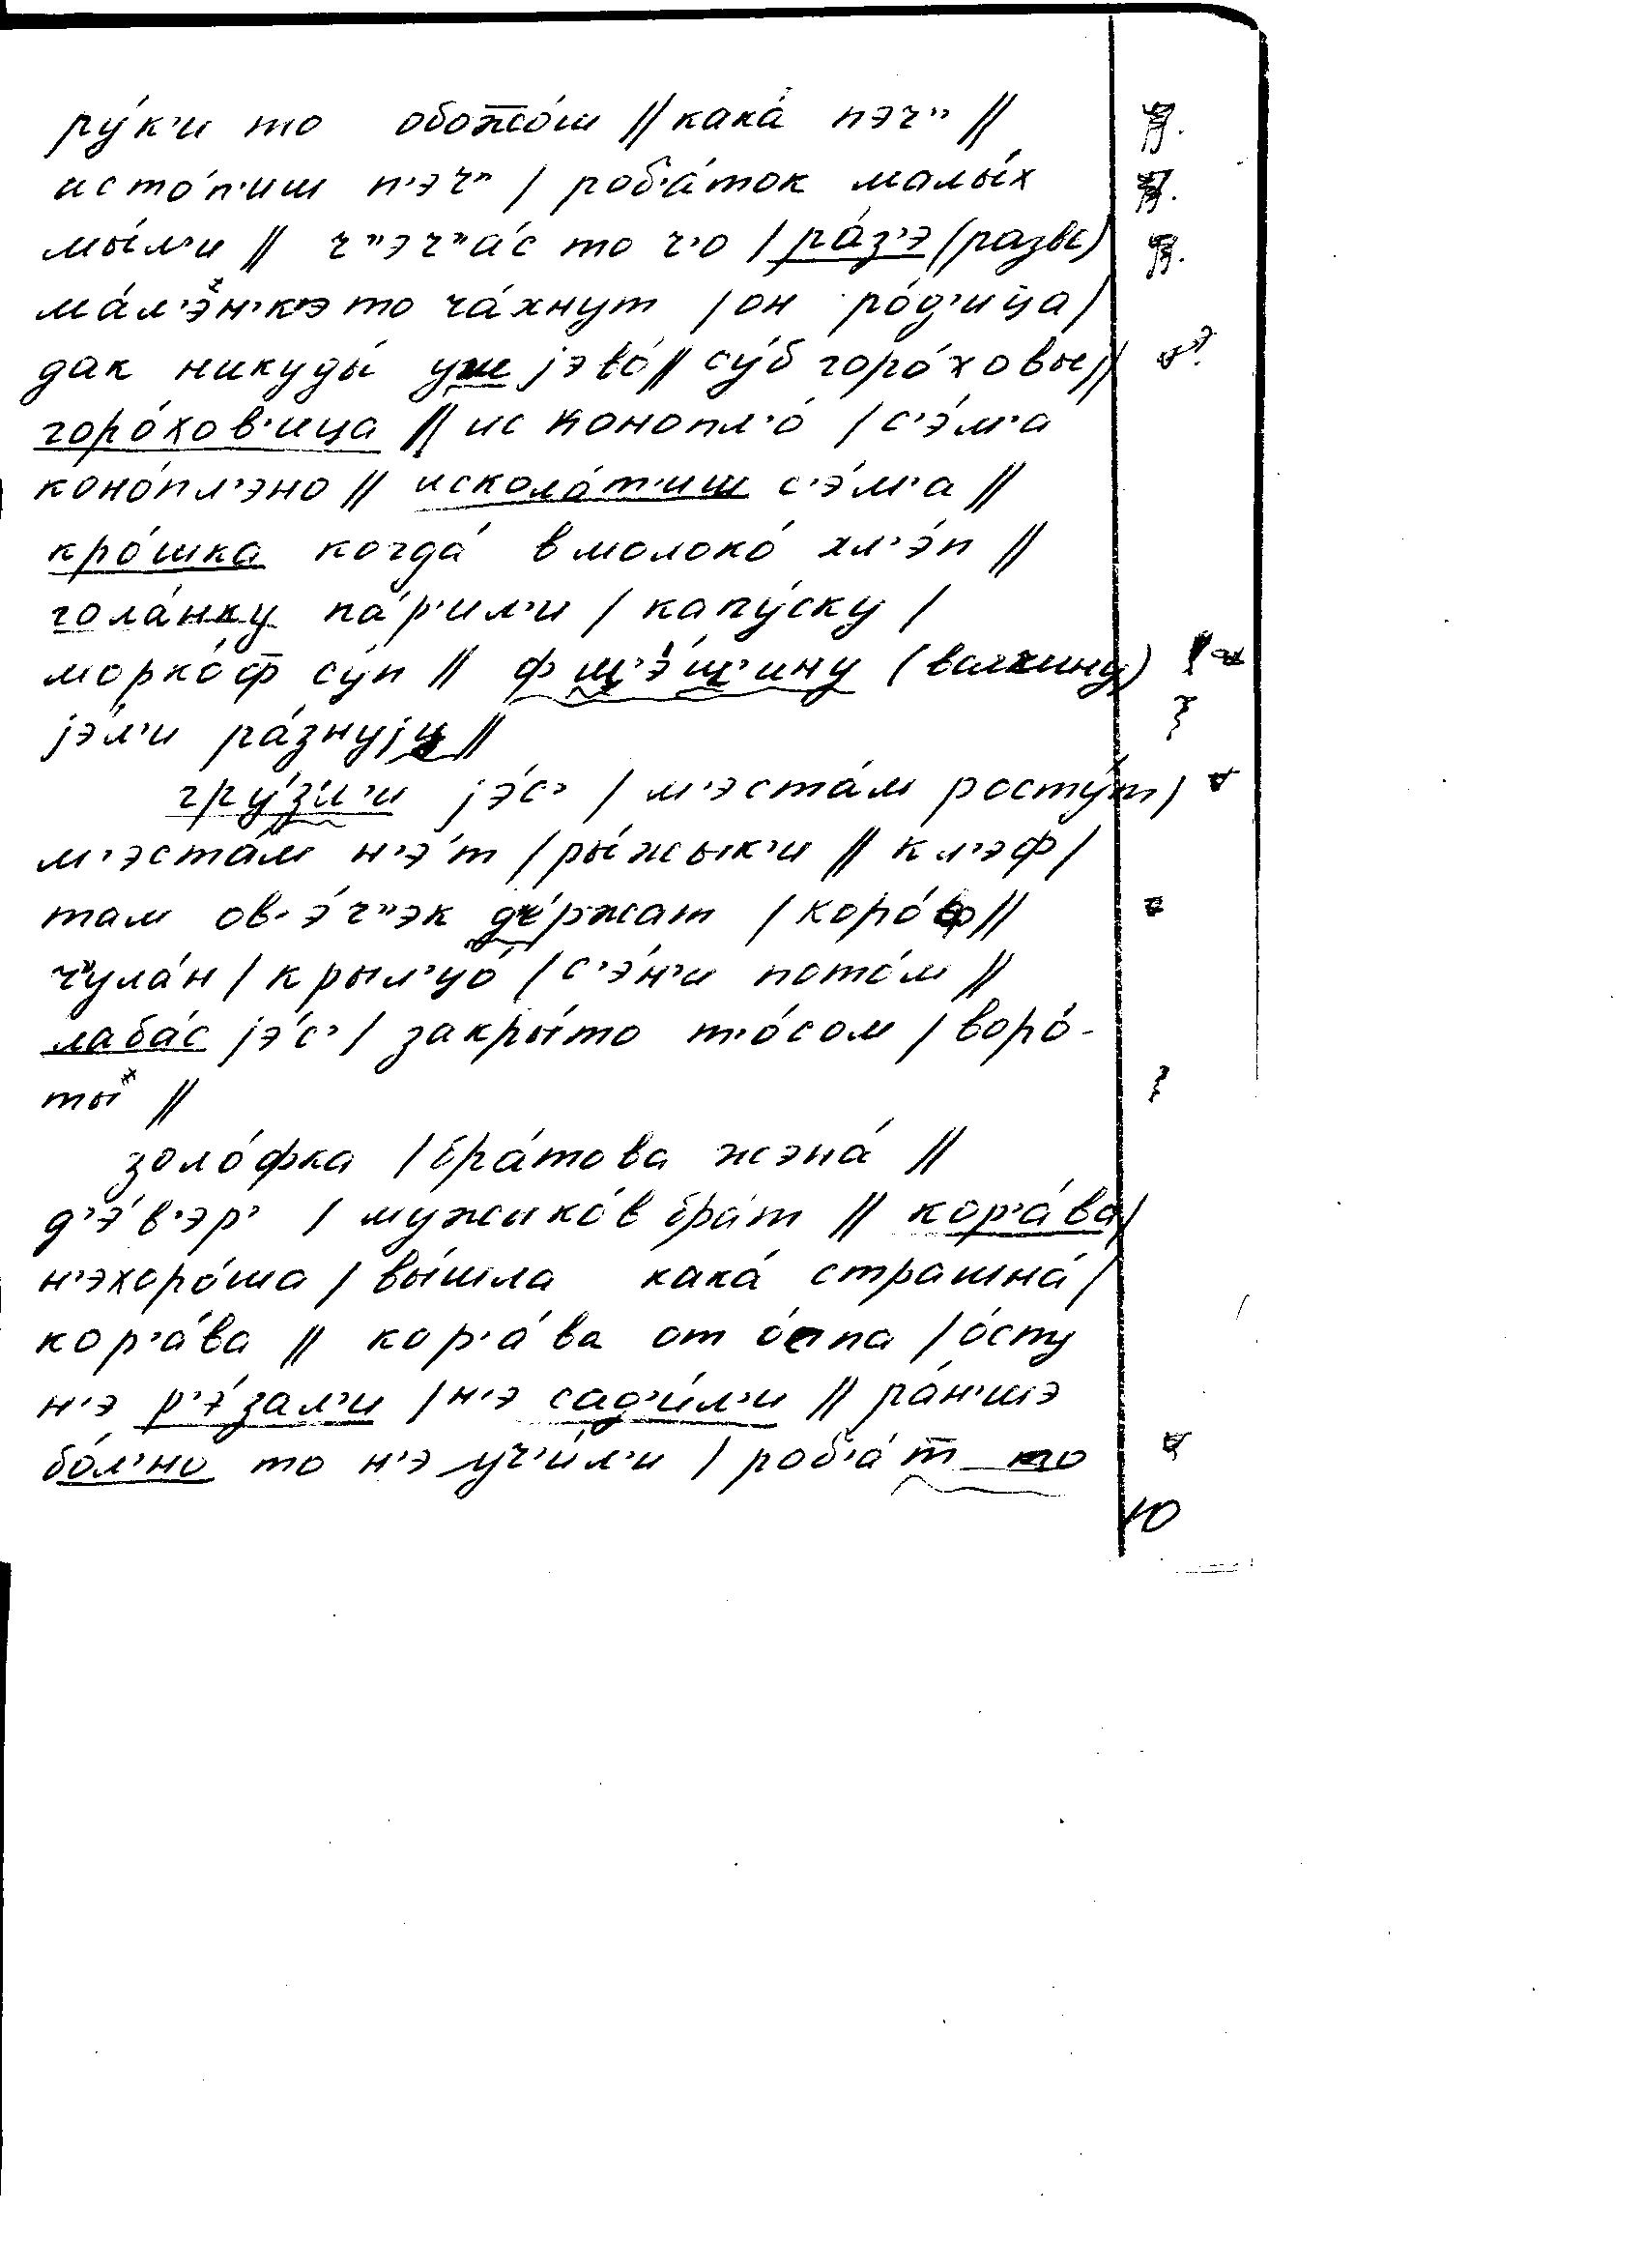 ру́к'и то обож̅о́ш // кака́ пэч" //
исто́п'иш п'эч" / роб'а́ток малы́х
мы́л'и // ч"эч"а́с то ч'о / ра́з'э (разве)
ма́л'эн'к'э то ча́хнут / он ро́д'ица /
дак никуды́ уш jэво́ // су́б горо́ховые //
горо́хов'ица // ис конопл'о́ / с'э́м'а
коно́пл'эно // исколо́т'иш с'э́м'а //
кро́шка когда́ в молоко́ хл'э́п //
гола́нку па́р'ил'и / капу́ску /
морко́ф̅ су́п // ф ш'э́ш'ину
jэ́л'и ра́знуjу //
гру́зд'и jэ́с' / м'эста́м росту́т /
м'эста́м н'э́т / ры́жык'и // кл'эф /
там ов'э́ч"эк де́ржат / коро́ф //
ч"ула́н / крыл'цо́ / с'э́н'и пото́м //
лаба́с jэ́с' / закры́то т'о́сом / воро́-
ты //
золо́фка / бра́това жэна́ //
д'э́в'эр' / мужико́в бра́т // кор'а́ва /
н'эхоро́ша / вы́шла кака́ страшна́ /
кор'а́ва // кор'а́ва от о́спа / о́спу
н'э р'э́зал'и / н'э сад'и́л'и // ра́н'шэ
бо́л'но то н'э уч'и́л'и / роб'а́т̅ то
10